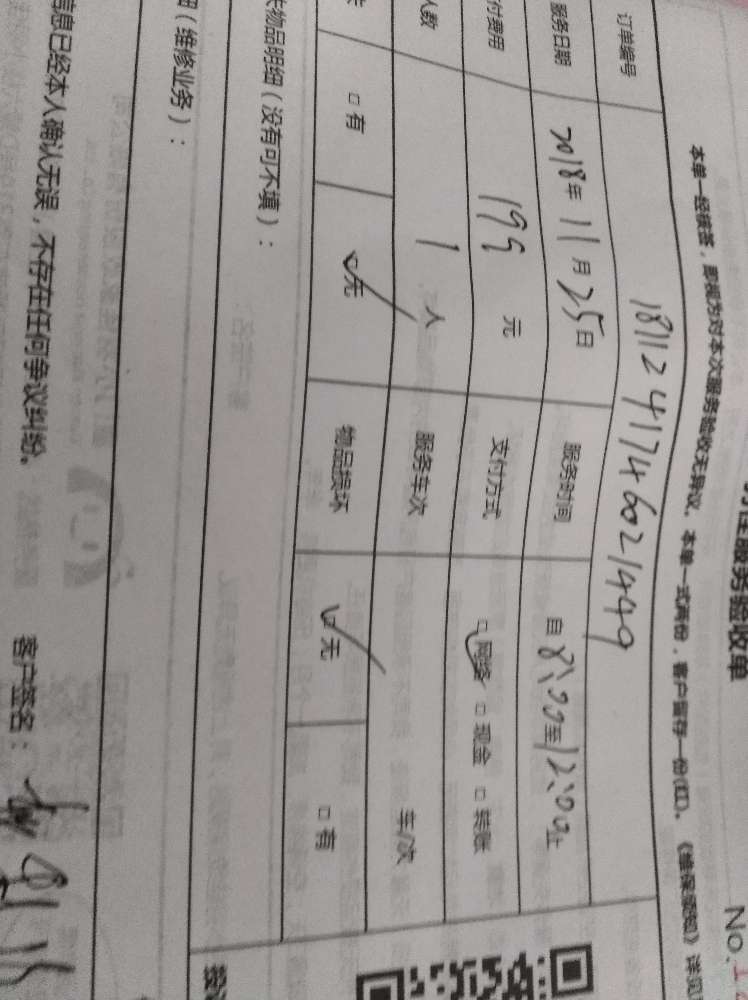 服务验收单
No.
本单一经核签，即视为对本次服务验收无异议。本单一式两份，客户留存一份(红)。《维保须知》详见
订单编号 1811241746021449
服务日期 2018年11月25日 服务时间 自8:00至12:00止
付费用 199元 支付方式 □网络 □现金 □转账
人数 1人 服务车次 车/次
□有 □无 物品损坏 □无 □有
物品明细（没有可不填）：
（维修业务）：
信息已经本人确认无误，不存在任何争议纠纷。 客户签名：